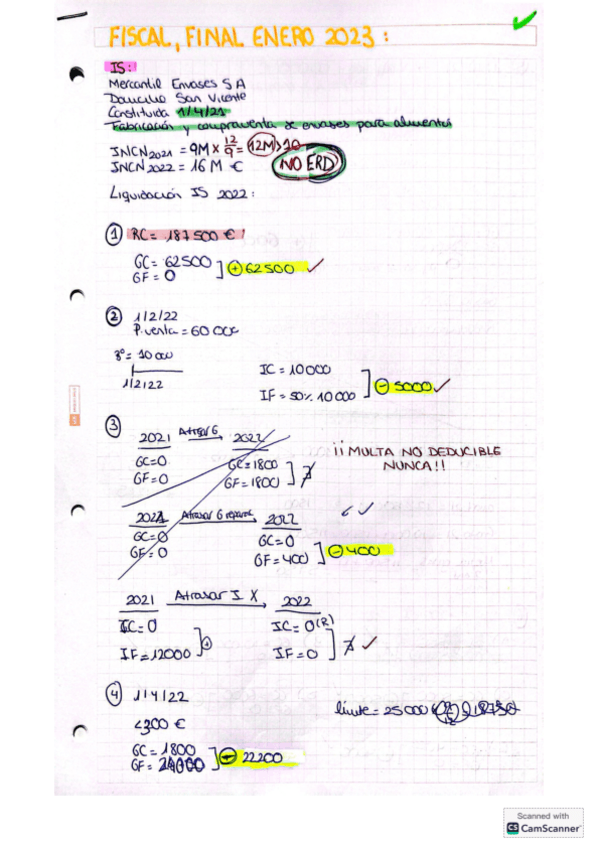 FISCAL, FINAL ENERO 2023:
IS:
Mercantil Envases SA
Domicilio San Vicente
Constituida 1/4/21
Fabricación y compraventa de envases para alimentos
INCN2021 = 9M x 12/9 = 12M > 10
INCN2022 = 16 M €
NO ERD
Liquidación IS 2022:
1 RC = 187500 €
GC = 62500
GF = 0
+ 62500
2 1/2/22
P. venta = 60 000
Bº = 10 000
1/2/22
IC = 10000
IF = 50% 10 000
- 5000
3
2021 Atrasar G 2022
GC=0 GC=1800
GF=0 GF=1800
¡¡MULTA NO DEDUCIBLE
NUNCA!!
2021 Atrasar G 2022
GC=0 GC=0
GF=0 GF=400
- 400
2021 Atrasar I X 2022
IC=0 IC=0 (R)
IF=12000 IF=0
4 1/4/22
límite = 25000
<300 €
GC = 1800
GF = 24000
- 22200
Scanned with
CS CamScanner